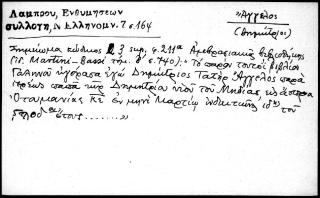 Λάμπρου, Ἐνθυμήσεων
συλλογή, Ν. Ἑλληνομν. 7 σ. 164
Ἄγγελος
(Δημήτριος)
Σημείωμα κώδικος sup, φ. 211α Ἀμβροσιανῆς βιβλιοθήκης
Martini-Bassi τόμ. σ. 740): "Τὸ παρὸν τουτοὶ βιβλίον
Γαληνοῦ ἠγόρασα ἐγὼ Δημήτριος Ἄγγελος παρὰ
παπᾶ κὺρ Δημητρίου υἱοῦ τοῦ Μηδείας εἰς
ἐν μηνὶ Μαρτίῳ ἰνδικτιῶνος τοῦ
ἔτους ......... "